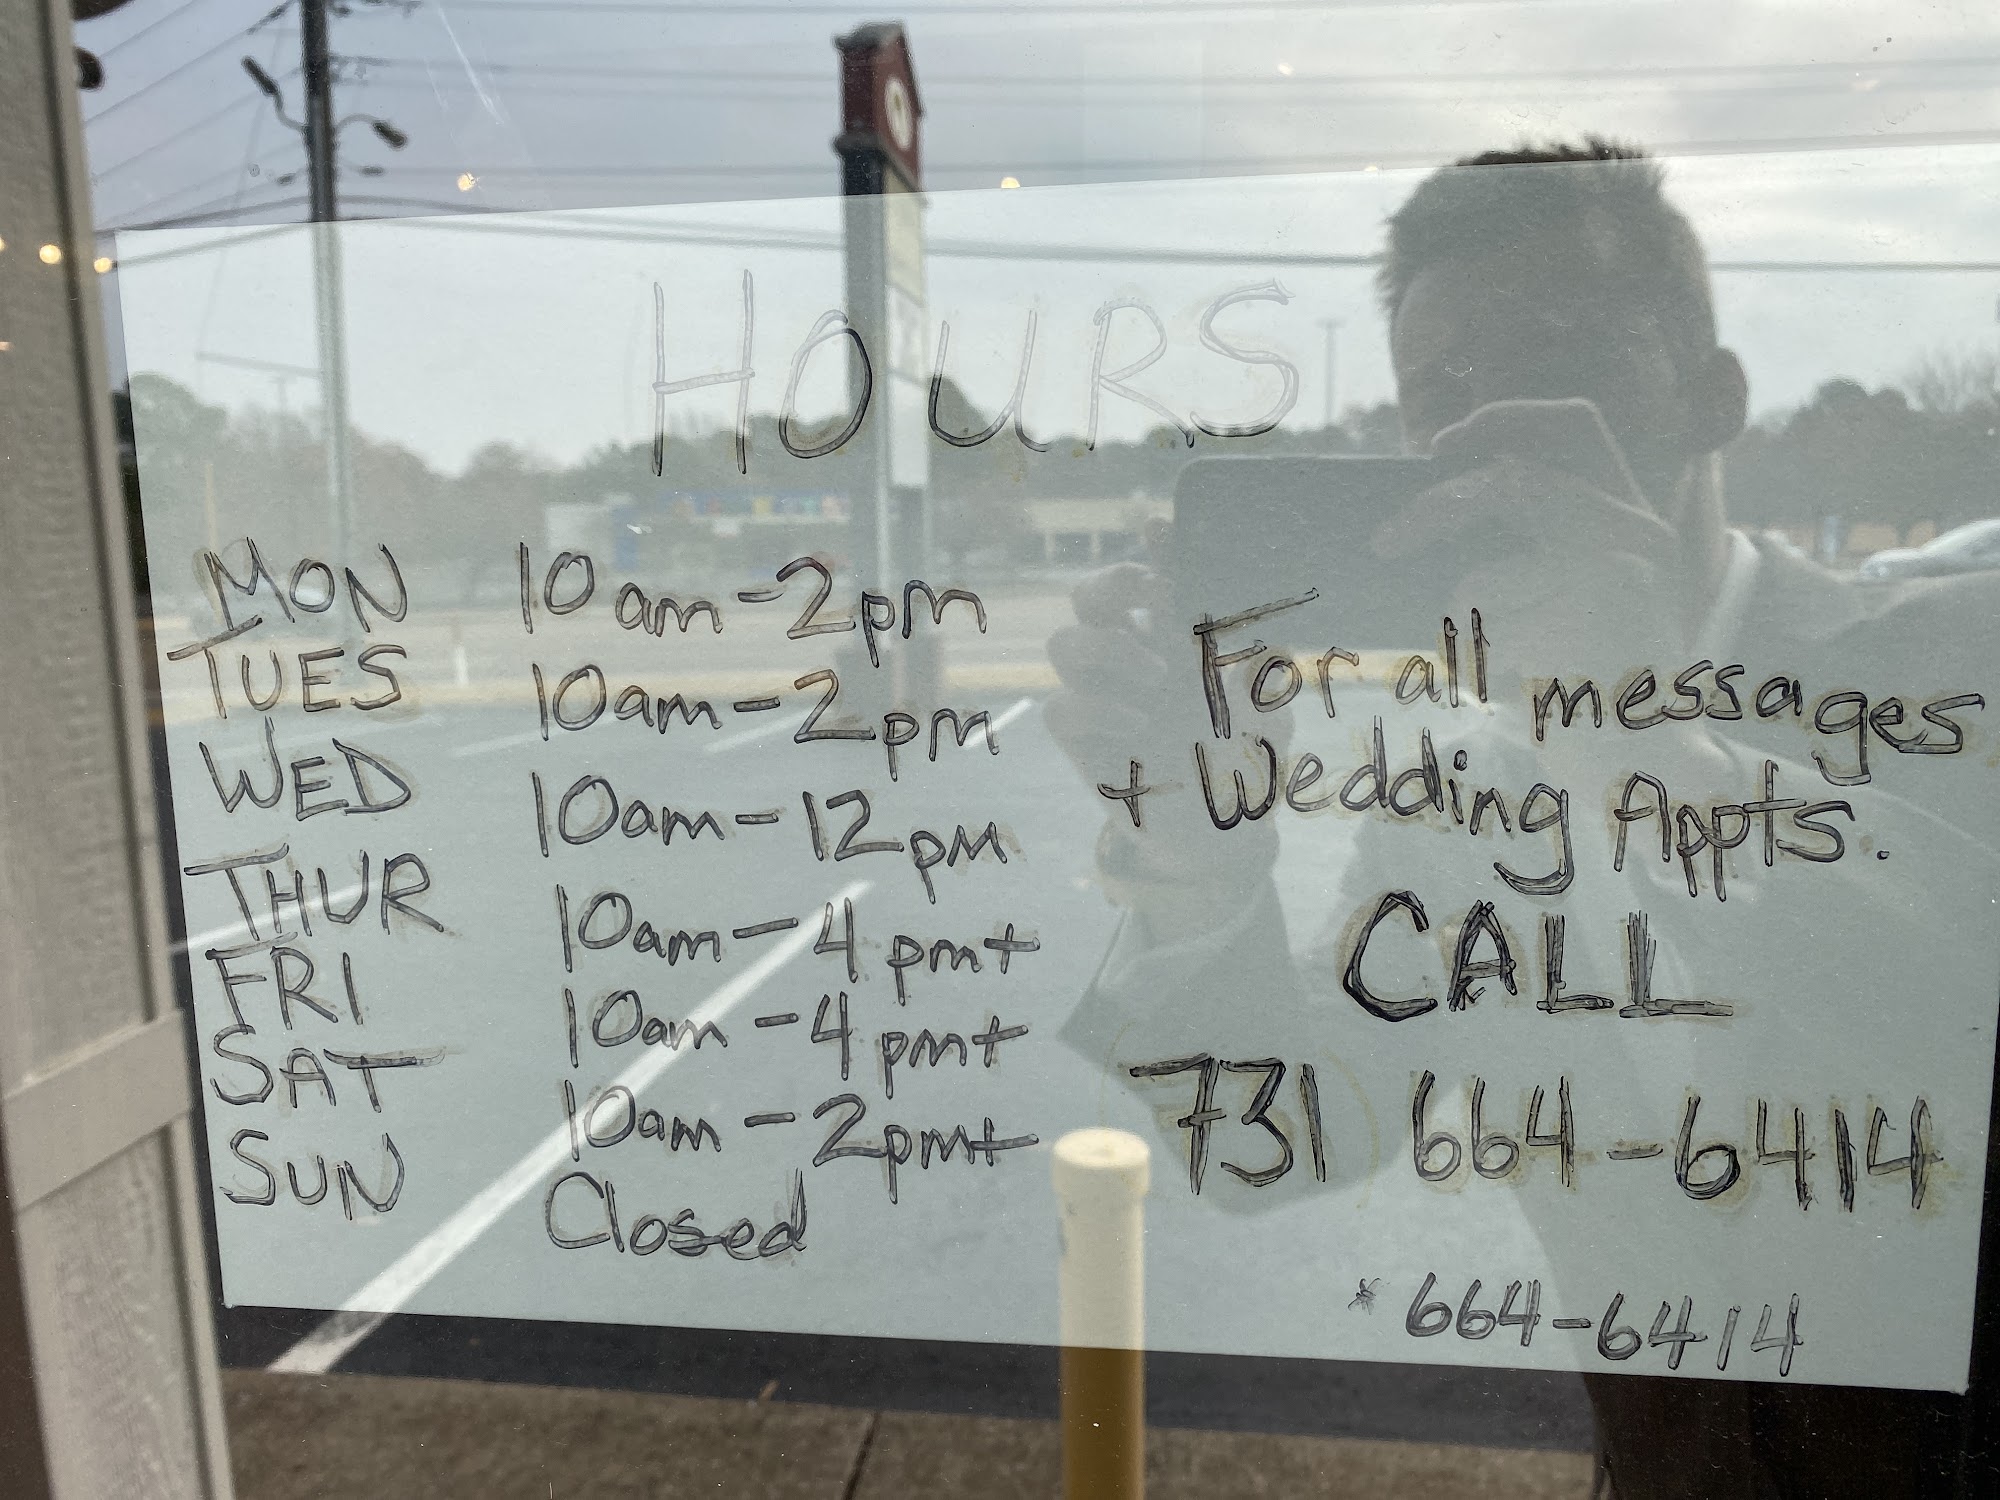 HOURS
MON 10am-2pm
TUES 10am-2pm
WED 10am-12pm
THUR 10am-4pm+
FRI 10am-4pm+
SAT 10am-2pm+
SUN Closed
For all messages
+ Wedding Appts.
CALL
731 664-6414
* 664-6414